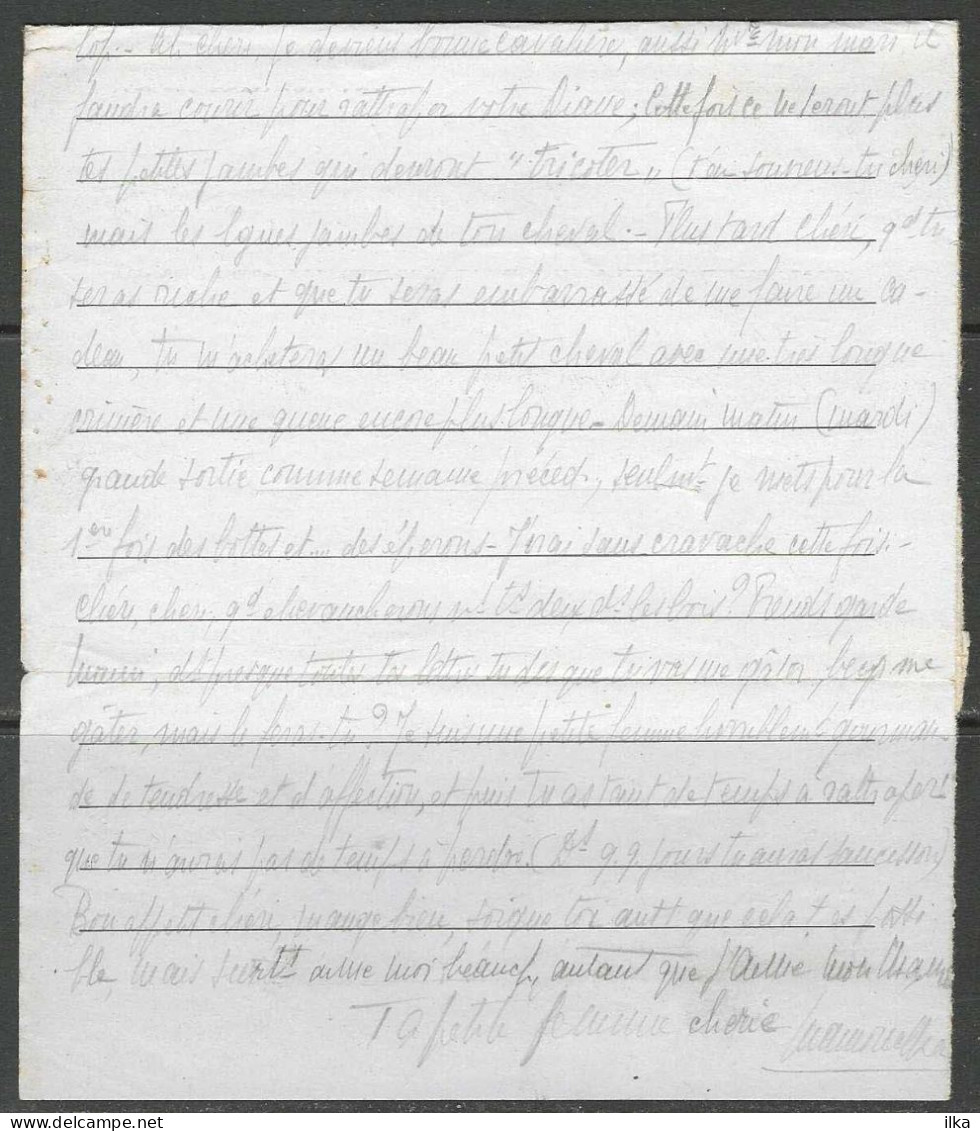 lop.- Ah chéri, je deviens bonne cavalière, aussi mon mari il
faudra courir pour rattraper votre Diane; Cette fois ce ne seront plus
tes petites jambes qui devront "tricoter" (t'en souviens-tu chéri)
mais les lgues jambes de ton cheval.- Plus tard Chéri, qd tu
seras riche et que tu seras embarrassé de me faire un ca-
deau, tu m'achèteras un beau petit cheval avec une très longue
crinière et une queue encore plus longue - Demain matin (mardi)
grande sortie comme semaine précéd., seulmt je mets pour la
1ère fois des bottes et.... des éperons - J'irai sans cravache cette fois.-
chéri, chéri, qd chevaucherons ns ts deux ds les bois? Prends garde
ds presque toutes tes lettres tu dis que tu vas me gâter, bcp me
gâter, mais le feras-tu? Je suis une petite femme horriblemt gourman
de de tendresse et d'affection, et puis tu as tant de temps à rattraper
que tu n'auras pas de temps à perdre. (Ds qq jours tu auras saucisson)
Bon appétit chéri, mange bien, soigne toi autt que cela t'es possi
ble, mais surtt aime moi beaucp, autant que j'aime mon
Ta petite femme chérie